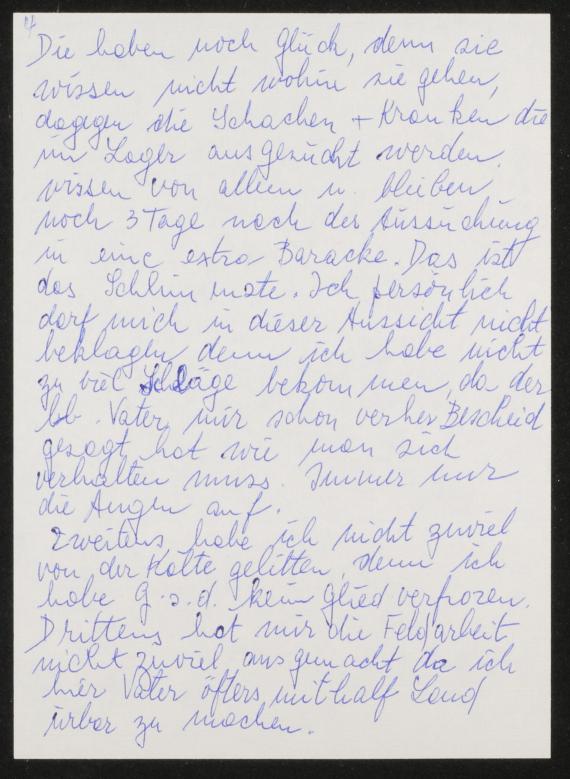 4
Die haben noch Glück, denn sie
wissen nicht wohin sie gehen,
dagegen die Schachen + Kranken die
im Lager ausgesucht werden,
wissen von allem u. bleiben
noch 3 Tage nach der Aussuchung
in eine extra Baracke. Das ist
das Schlimmste. Ich persönlich
darf mich in dieser Aussicht nicht
beklagen denn ich habe nicht
zu viel Schläge bekommen, da der
lb. Vater mir schon verher Bescheid
gesagt hat wie man sich
verhalten muss. Immer nur
die Augen auf.
Zweitens habe ich nicht zuviel
von der Kälte gelitten, denn ich
habe g.s.d. kein Glied verfroren.
Drittens hat mir die Feldarbeit
nicht zuviel ausgemacht da ich
hier Vater öfters mithalf Land
urbar zu machen.